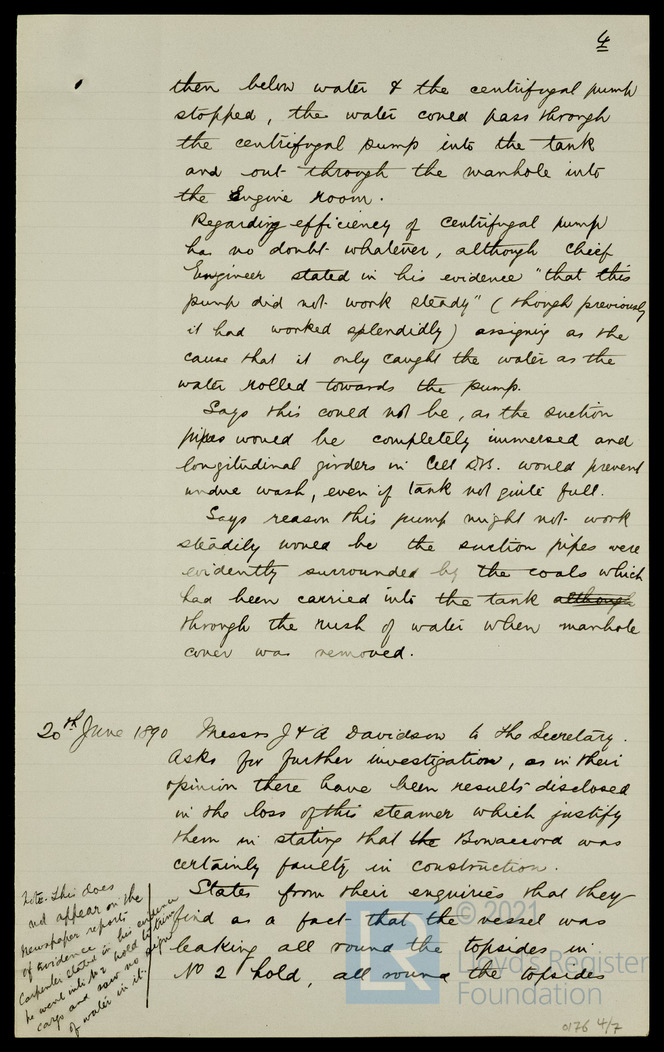 4
then below water & the centrifugal pump
stopped, the water could pass through
the centrifugal pump into the tank
and out through the manhole into
the Engine room.
Regarding efficiency of centrifugal pump
has no doubt whatever, although chief
Engineer stated in his evidence "that this
pump did not work steady" (though previously
it had worked splendidly) assigning as the
cause that it only caught the water as the
water rolled towards the pump.
Says this could not be, as the suction
pipes would be completely immersed and
longitudinal girders in Cell D.B. would prevent
undue wash, even if tank not quite full.
Says reason this pump might not work
steadily would be the suction pipes were
evidently surrounded by the coals which
had been carried into the tank although
through the rush of water when manhole
cover was removed.
20th June 1890 Messrs J & A Davidson to the Secretary.
Asks for further investigation, as in their
opinion there have been results disclosed
in the loss of this steamer which justify
them in stating that the Bonaccord was
certainly faulty in construction.
States from their enquiries that they
find as a fact that the vessel was
leaking all round the topsides in
No 2 hold, all round the topsides
Note. This does
not appear on the
newspaper reports
of evidence
Carpenter stated in his evidence
he went into No 2 hold to trim
cargo and saw no sign
of water in it.
© 2021
Lloyd's Register
Foundation
LR
0176 4/7